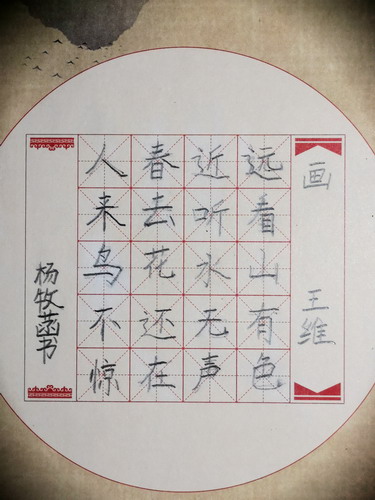 画
王维
远看山有色
近听水无声
春去花还在
人来鸟不惊
杨牧菡书